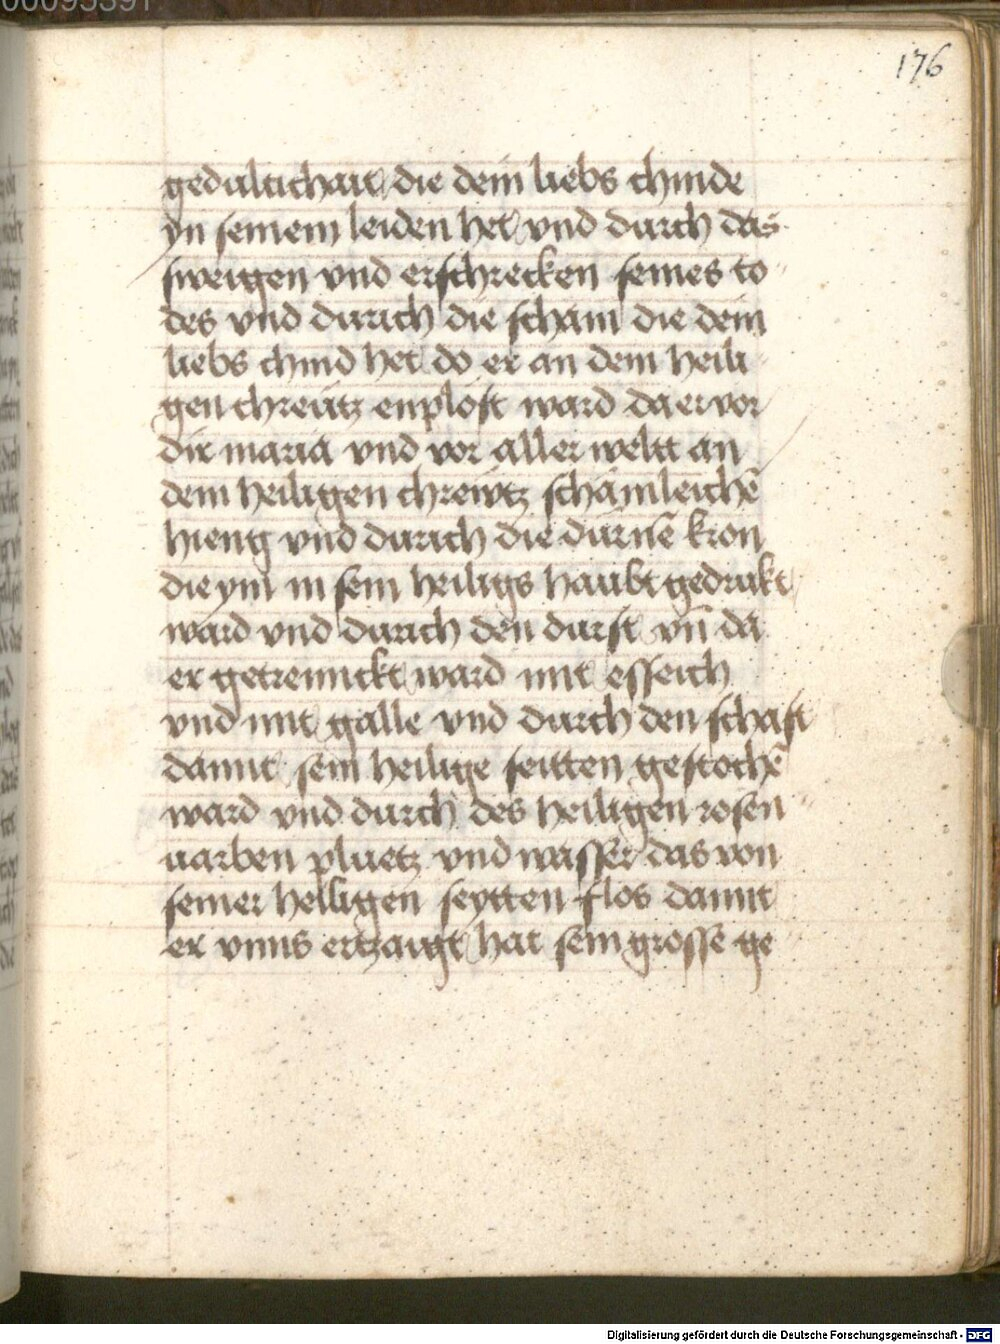 00095391
176
gedultichait die dein liebs chinde
yn seinem leiden het vnd durch das
sweigen vnd erschrecken seines to
des vnd durich die scham die dein
liebs chind het do er an dem heili
gen chreutz enplost ward da er vor
dir maria vnd vor aller weltt an
dem heiligen chrewtz schamleichē
hieng vnd durich die durnē kron
die ym in sein heiligs haubt gedrukt
ward vnd durich den durst vn̄ da
er getrennckt ward mit esseich
vnd mit galle vnd durch den schaft
damit sein heilige seitten gestochē
ward vnd durch des heiligen rosen
uarben pluetz vnd wasser das von
seiner heiligen seytten flos damit
er vnns ertzaigt hat sein grosse ge
Digitalisierung gefördert durch die Deutsche Forschungsgemeinschaft - DFG